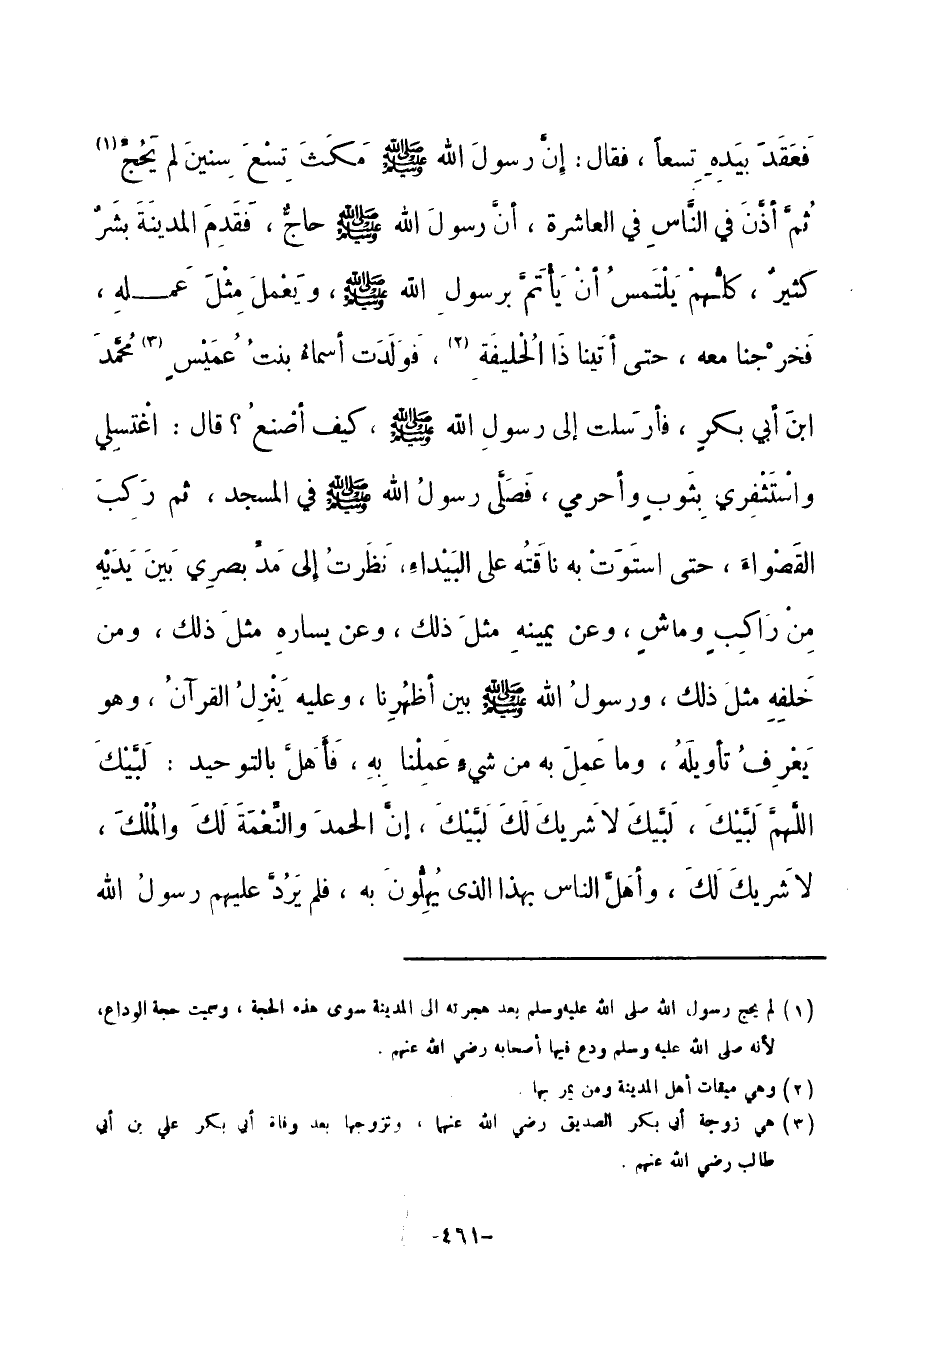 فَعَقَدَ بيَدِهِ تِسعاً ، فقال : إنَّ رسولَ الله ﷺ مَكَثَ تِسْعَ سِنينَ لم يَحُجَّ (١)
ثُمَّ أذَّنَ في النَّاسِ في العاشرة ، أنَّ رسولَ الله ﷺ حاجٌّ ، فَقَدِمَ المدينَةَ بشَرٌ
كثيرٌ ، كلُّهمْ يَلْتَمسُ أنْ يَأْتَمَّ برسولِ الله ﷺ ، ويَعْملَ مِثْلَ عَمــله ،
فَخرجْنا معه ، حتى أتَينا ذَا الْحُليفَةِ (٢) ، فَوَلَدَت أسماءُ بنتُ عُمَيْسٍ (٣) مُحَمَّدَ
ابنَ أبي بكرٍ ، فأرسَلت إلى رسولِ الله ﷺ ، كيف أصْنعُ ؟ قال : اغْتسِلي
واسْتَثْفِري بِثَوبٍ وأحرمي ، فَصَلَّى رسولُ الله ﷺ في المسجد ، ثم رَكِبَ
القَصْواءَ ، حتى استَوَتْ به ناقتُه على البَيْداءِ، نَظَرتُ إلى مَدِّ بصرِي بَينَ يَدَيْهِ
مِنْ رَاكِبٍ وماشٍ ، وعن يمينهِ مثلَ ذلك ، وعن يسارهِ مثلَ ذلك ، ومن
خَلفِهِ مثلَ ذلك ، ورسولُ الله ﷺ بين أظهُرِنا ، وعليه يَنْزِلُ القرآنُ ، وهو
يَعْرِفُ تأويلَهُ ، وما عَمِلَ به من شيءٍ عَمِلْنا بِهِ ، فَأَهلَّ بالتوحيد : لَبَّيْكَ
اللَّهمَّ لَبَّيْكَ ، لَبَّيكَ لاَ شريكَ لَكَ لَبَّيْكَ ، إنَّ الحمدَ والنِّعْمَةَ لَكَ والمُلْكَ ،
لا شريكَ لَكَ ، وأهَلَّ الناس بهذا الذى يُهِلُّونَ به ، فلم يَرُدَّ عليهم رسولُ الله
(١) لم يحج رسول الله صلى الله عليه وسلم بعد هجرته الى المدينة سوى هذه الحجة ، وسميت حجة الوداع،
لأنه صلى الله عليه وسلم ودع فيها أصحابه رضي الله عنهم .
(٢) وهي ميقات أهل المدينة ومن يمر بها .
(٣) هي زوجة أبي بكر الصديق رضي الله عنها ، وتزوجها بعد وفاة أبي بكر علي بن أبي
طالب رضي الله عنهم .
-٤٦١-